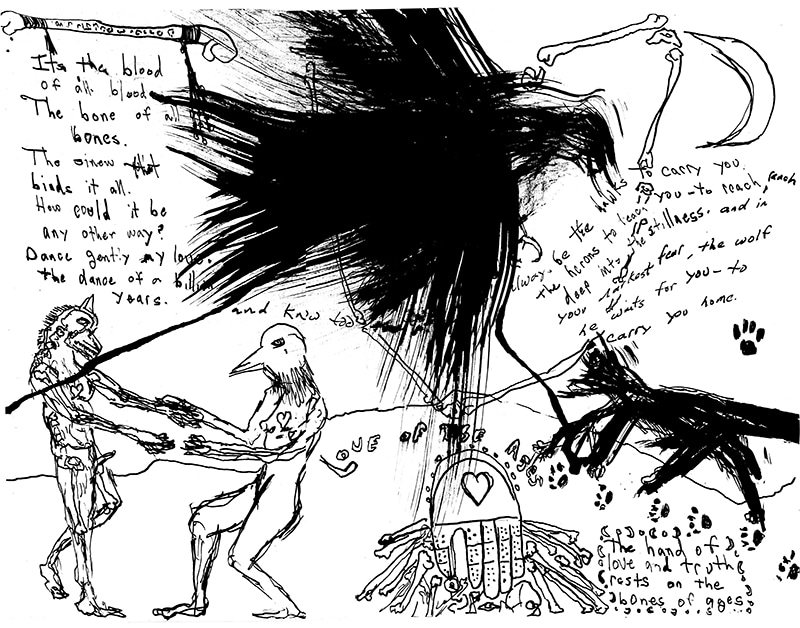 Its the blood
of all blood
The bone of all
bones.
The sinew that
binds it all.
How could it be
any other way?
Dance gently my love.
the dance of a billion
years.
and know too
be the hawks to carry you
the herons to teach you-to reach, reach
deep into the stillness. and in
your darkest fear, the wolf
he waits for you-to
carry you home.
LOVE OF THE AGES
The hand of
love and truth
rests on the
bones of ages